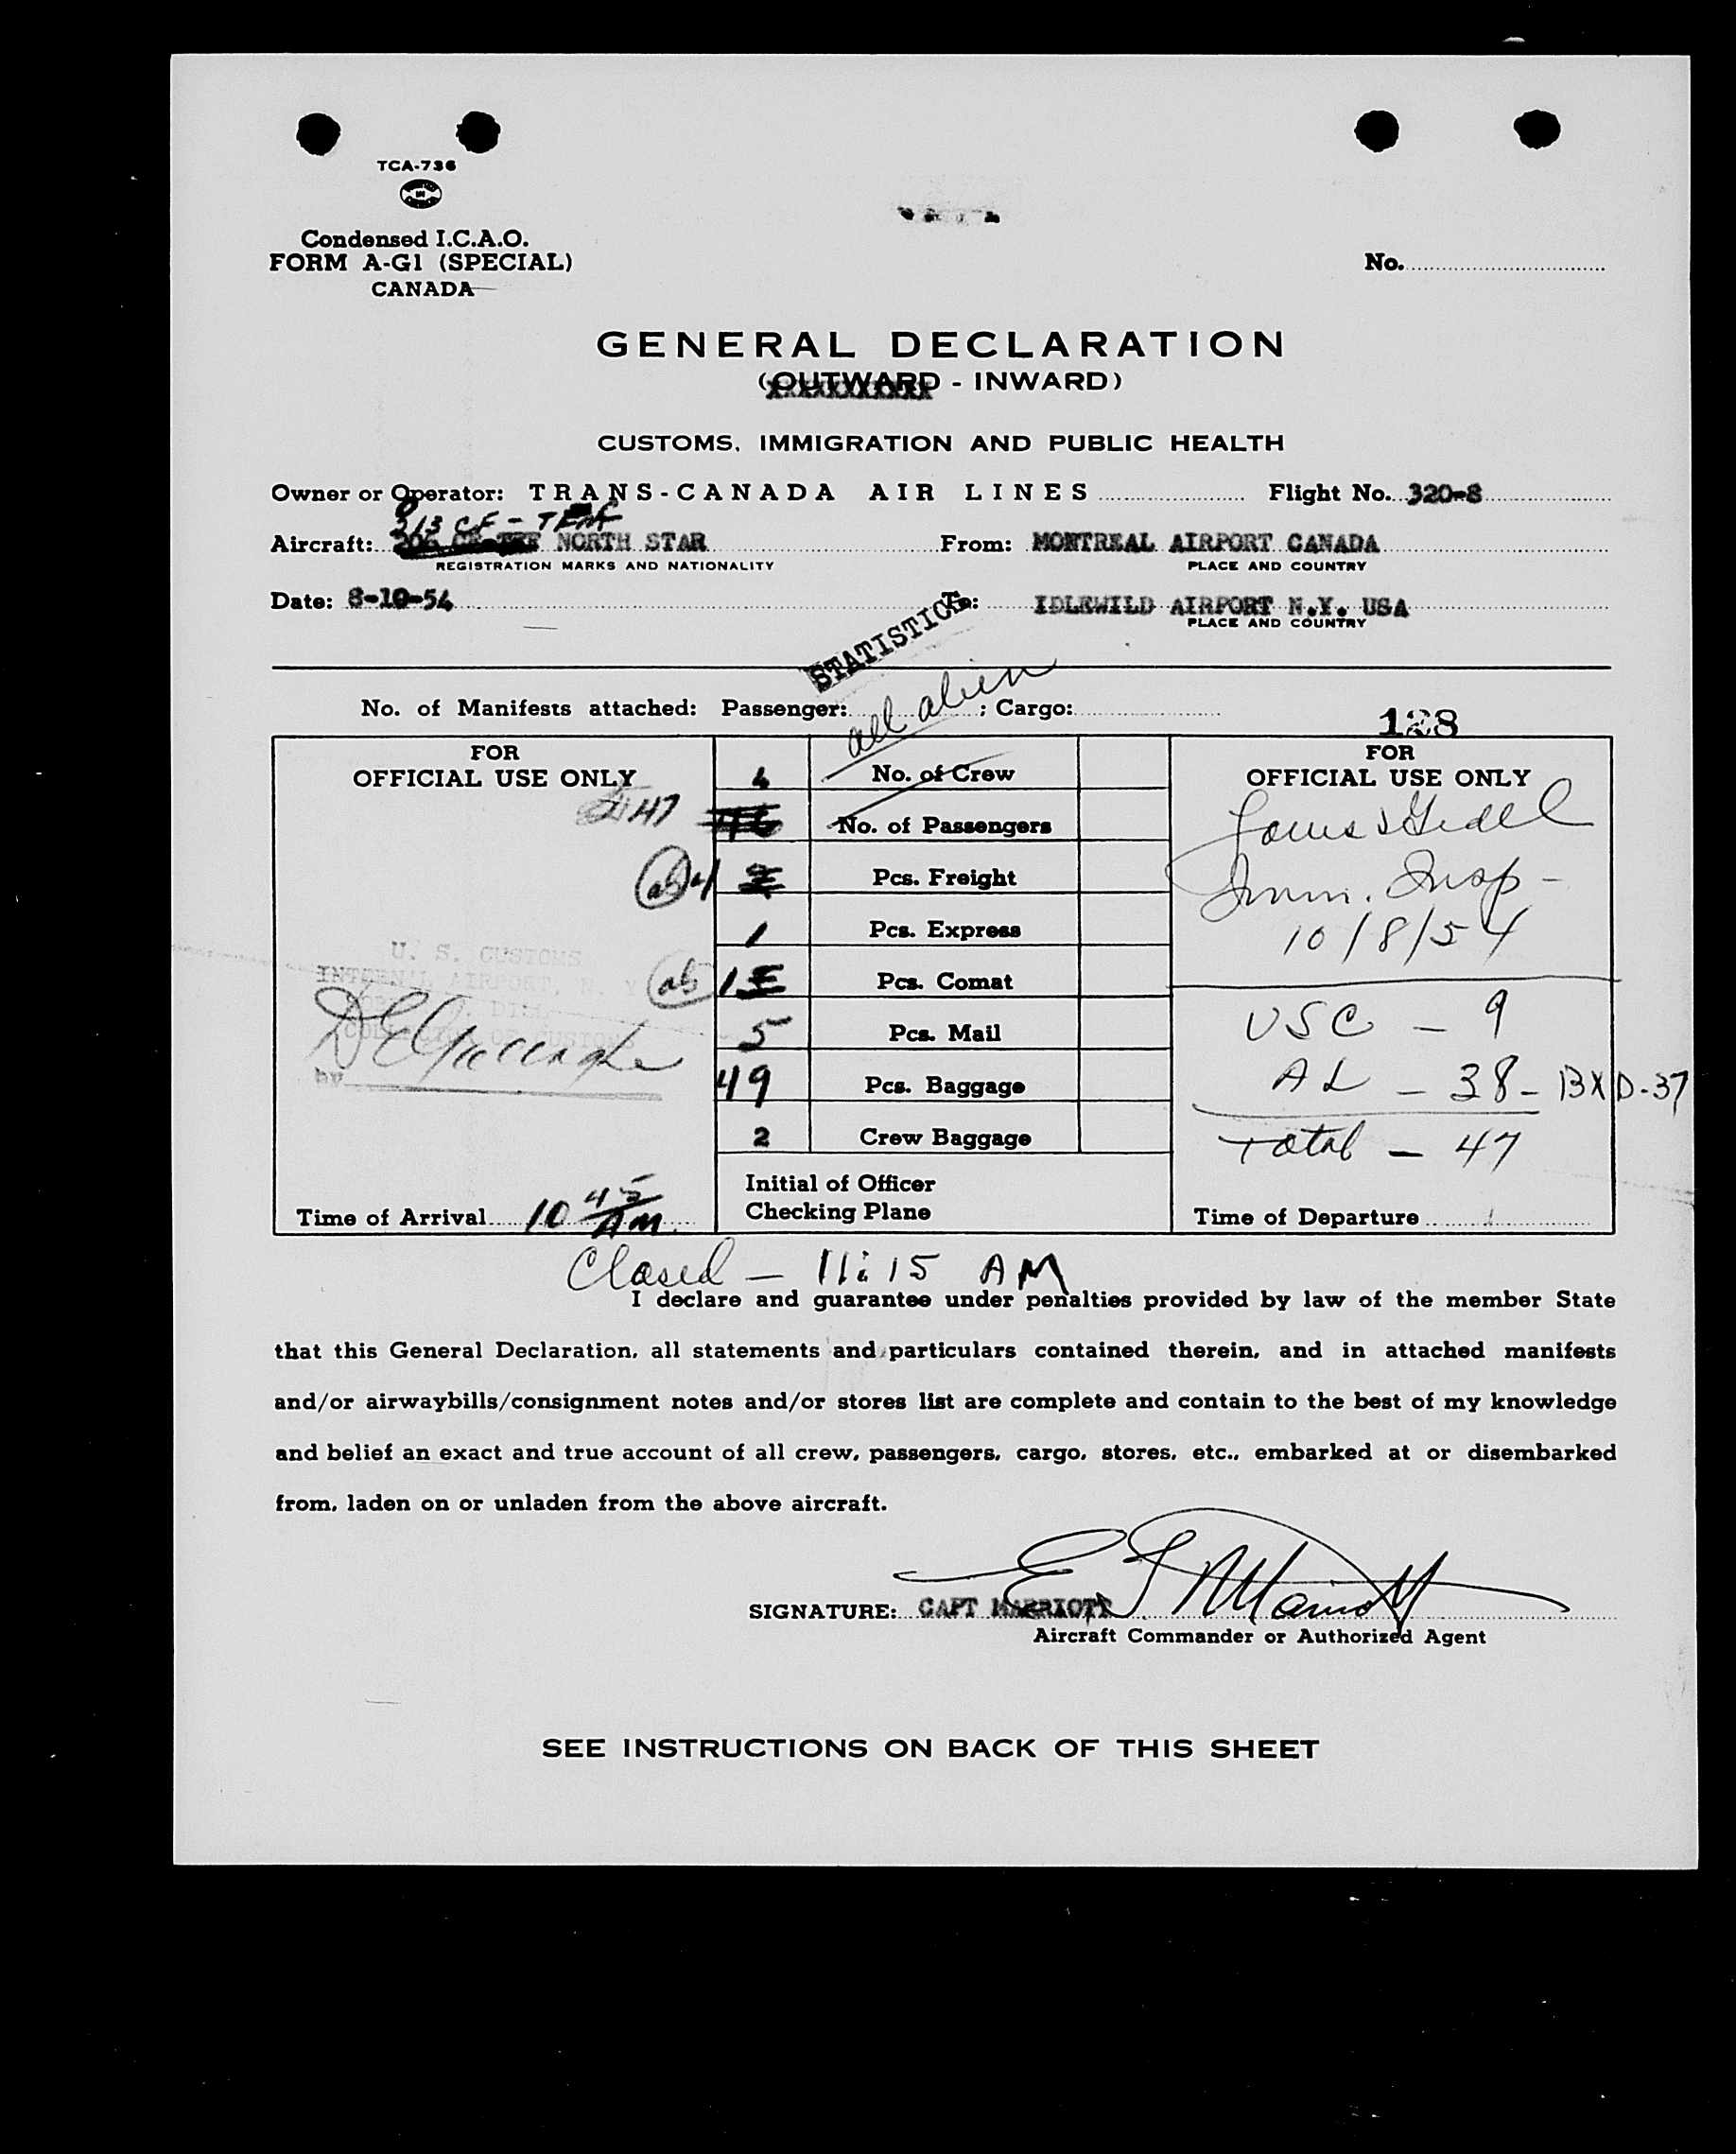 TCA-736
Condensed I.C.A.O.
FORM A-G1 (SPECIAL)
CANADA
No.
GENERAL DECLARATION
(OUTWARD - INWARD)
CUSTOMS, IMMIGRATION AND PUBLIC HEALTH
Owner or Operator: TRANS-CANADA AIR LINES Flight No. 320-8
213 CF -
Aircraft: NORTH STAR From: MONTREAL AIRPORT CANADA
REGISTRATION MARKS AND NATIONALITY PLACE AND COUNTRY
Date: 8-10-54 To: IDLEWILD AIRPORT N.Y. USA
PLACE AND COUNTRY
STATISTICS
all alien
No. of Manifests attached: Passenger: ; Cargo:
128
FOR
OFFICIAL USE ONLY
4 No. of Crew
47 46 No. of Passengers
Pcs. Freight
1 Pcs. Express
Pcs. Comat
5 Pcs. Mail
49 Pcs. Baggage
2 Crew Baggage
Initial of Officer
Checking Plane
U. S. CUSTOMS
INTERN'L AIRPORT, N. Y.
COLLECTOR OF CUSTOMS
by
Time of Arrival 10 45 AM
FOR
OFFICIAL USE ONLY
Imm. Insp -
10/8/54
USC - 9
AL - 38 - BXD-37
Total - 47
Time of Departure
Closed - 11:15 AM
I declare and guarantee under penalties provided by law of the member State
that this General Declaration, all statements and particulars contained therein, and in attached manifests
and/or airwaybills/consignment notes and/or stores list are complete and contain to the best of my knowledge
and belief an exact and true account of all crew, passengers, cargo, stores, etc., embarked at or disembarked
from, laden on or unladen from the above aircraft.
SIGNATURE: CAPT MARRIOTT E S Marriott
Aircraft Commander or Authorized Agent
SEE INSTRUCTIONS ON BACK OF THIS SHEET